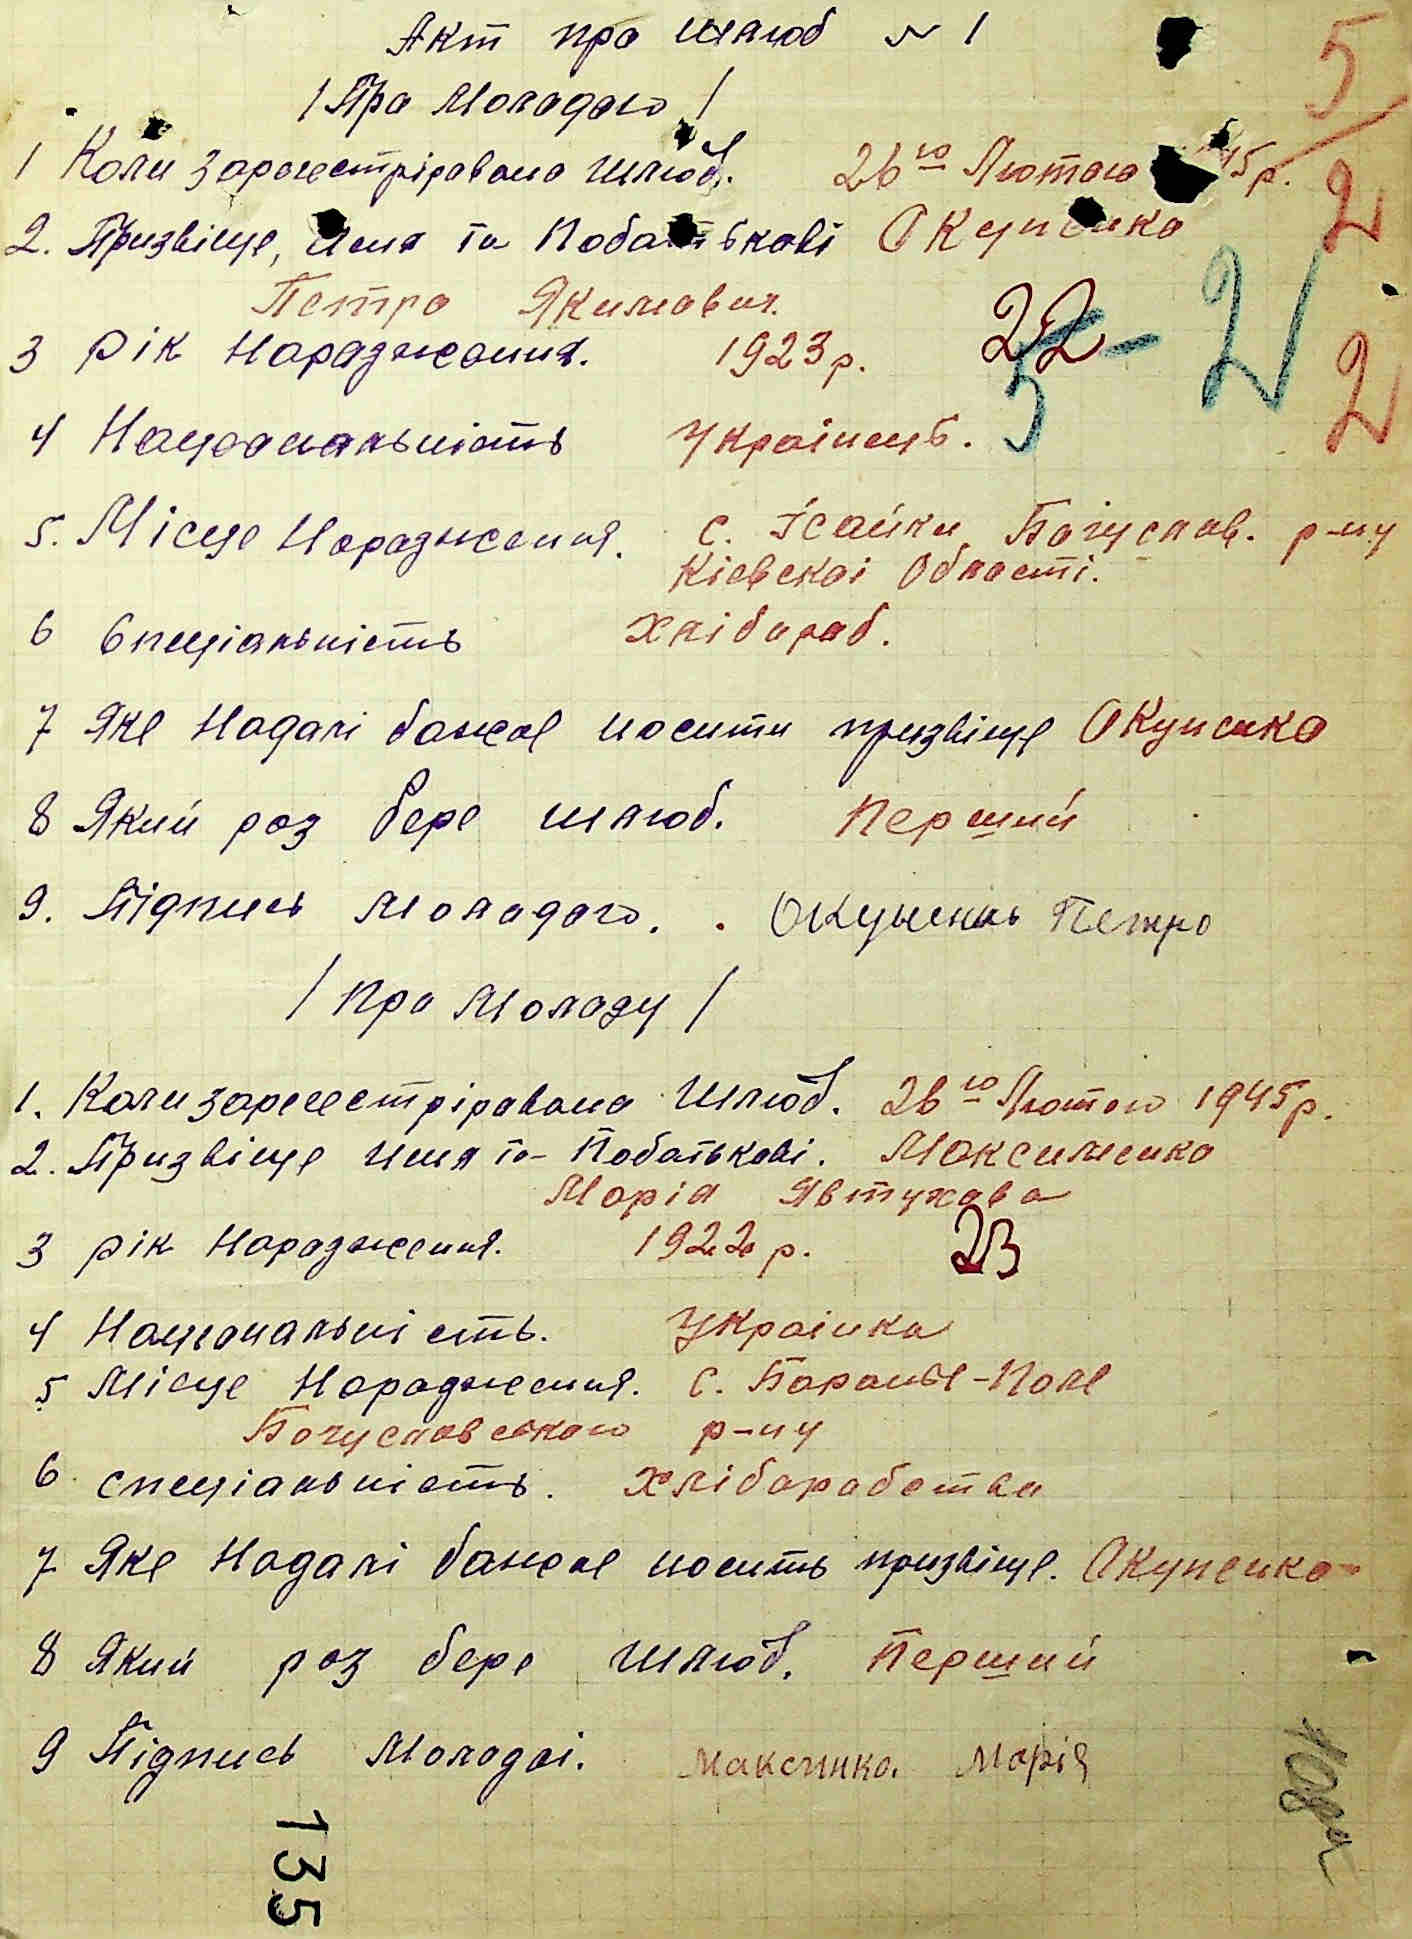 Акт про шлюб № 1
/ Про Молодого /
5
1 Коли зарегестріровано шлюб. 26го Лютого 45р.
2
2. Призвіще, имя та Побатькові Окупенко
Петро Якимович.
3 рік Народження. 1923 р. 22
5 - 2
2
4 Национальність Українець.
5. Місце Народження. с. Ісайки Богуслав. р-ну
Кієвскої Області.
6 Спеціальність Хлібороб.
7 Яке Надалі бажає носити призвіще Окупенко
8 Який раз бере шлюб. Перший
9. Підпись Молодого. Окупенко Петро
/ Про Молоду /
1. Коли зарегестріровано Шлюб. 26го Лютого 1945р.
2. Призвіще имя та Побатькові. Максименко
Марія Явтухова
3 рік Народження. 1922 р. 23
4 Национальність. Українка
5 Місце Народження. с. Баранье-Поле
Богуславського р-ну
6 спеціальність. Хліборобства
7 Яке Надалі бажає носить призвіще. Окупенко
8 Який раз бере шлюб. Перший
9 Підпись Молодої. Максинко. Марія
135